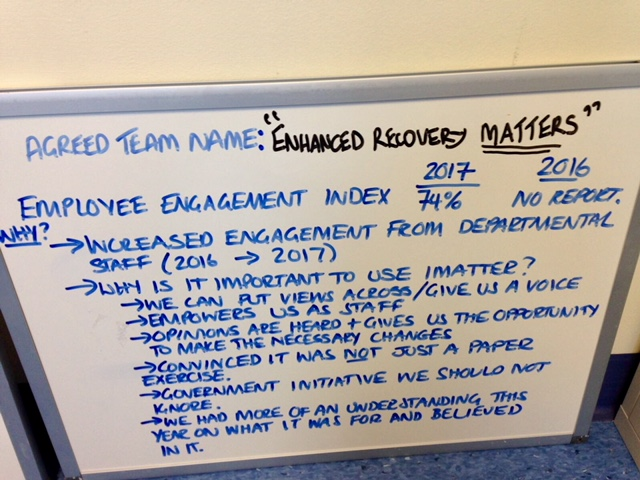 AGREED TEAM NAME: "ENHANCED RECOVERY MATTERS"
2017 2016
EMPLOYEE ENGAGEMENT INDEX 74% NO REPORT.
WHY? → INCREASED ENGAGEMENT FROM DEPARTMENTAL
STAFF (2016 → 2017)
→ WHY IS IT IMPORTANT TO USE IMATTER?
→ WE CAN PUT VIEWS ACROSS/GIVE US A VOICE
→ EMPOWERS US AS STAFF
→ OPINIONS ARE HEARD + GIVES US THE OPPORTUNITY
TO MAKE THE NECESSARY CHANGES
→ CONVINCED IT WAS NOT JUST A PAPER
EXERCISE.
→ GOVERNMENT INITIATIVE WE SHOULD NOT
IGNORE.
→ WE HAD MORE OF AN UNDERSTANDING THIS
YEAR ON WHAT IT WAS FOR AND BELIEVED
IN IT.